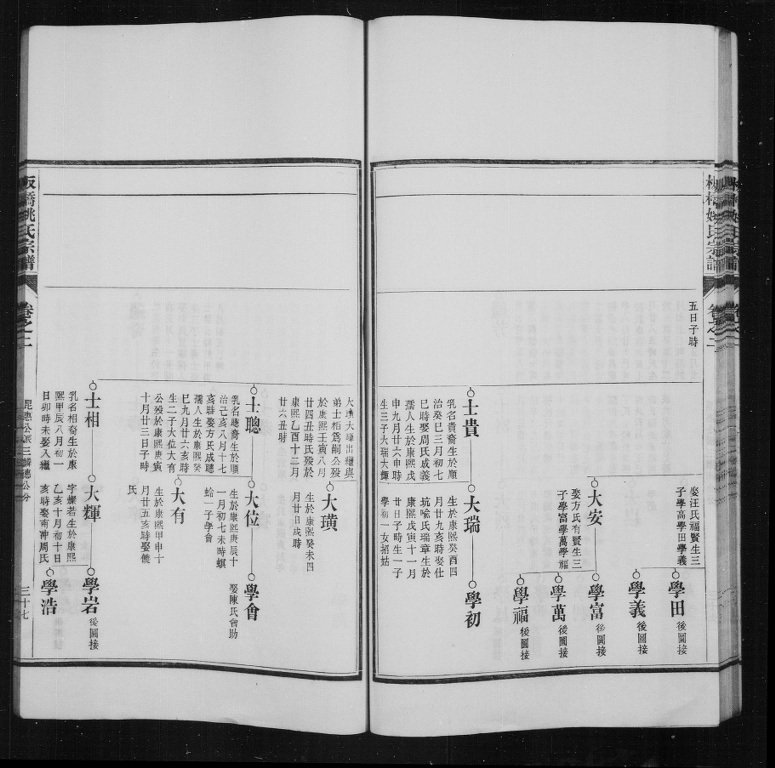 五日子時
娶汪氏福賢生三
子學高學田學義
學田 後圖接
學義 後圖接
大安
娶方氏有賢生三
子學富學萬學福
學富 後圖接
學萬 後圖接
學福 後圖接
士貴
乳名貴裔生於順
治癸巳三月初七
巳時娶周氏咸義
孺人生於康熙戊
申九月廿六申時
生三子大瑞大輝
大瑞
生於康熙癸酉四
月廿九亥時娶仕
坑喩氏瑞章生於
康熙戊寅十一月
廿日子時生一子
學初一女招姑
學初
大璜大輝出繼與
弟士相爲嗣公歿
於康熙壬寅八月
廿四丑時氏歿於
康熙乙酉十二月
廿六丑時
大璜
生於康熙癸未四
月廿日戌時
士聰
乳名聰裔生於順
治己亥八月十七
亥時娶方氏咸聰
孺人生於康熙癸
巳九月廿六亥時
生二子大位大有
公歿於康熙庚寅
十月廿三日子時
大位
生於康熙庚辰十
一月初七未時螟
蛉一子學會
學會
娶陳氏會助
大有
生於康熙甲申十
月廿五亥時娶儀
氏
士相
乳名相裔生於康
熙甲辰八月初一
日卯時未娶入繼
大輝
字耀若生於康熙
乙亥十月初十日
亥時娶南冲周氏
學岩 後圖接
學浩
板橋姚氏宗譜
卷之二
三十七